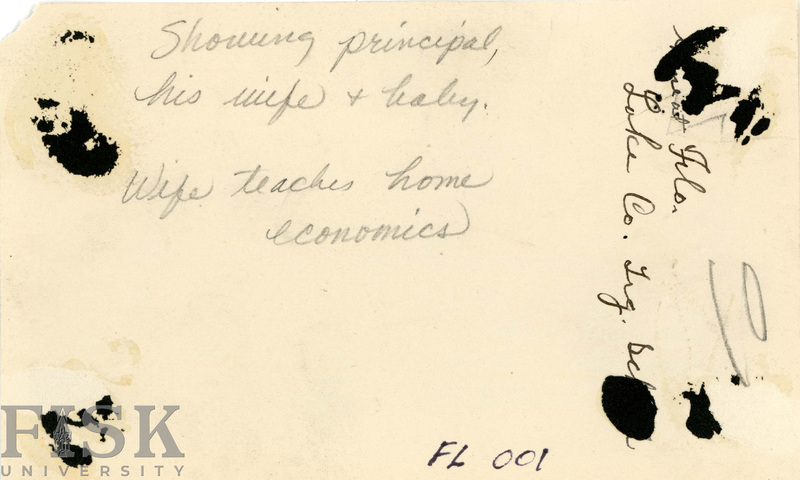 Showing principal,
his wife + baby.
Wife teaches home
economics
Fla.
Lake Co. Trg.
FL 001
FISK
UNIVERSITY